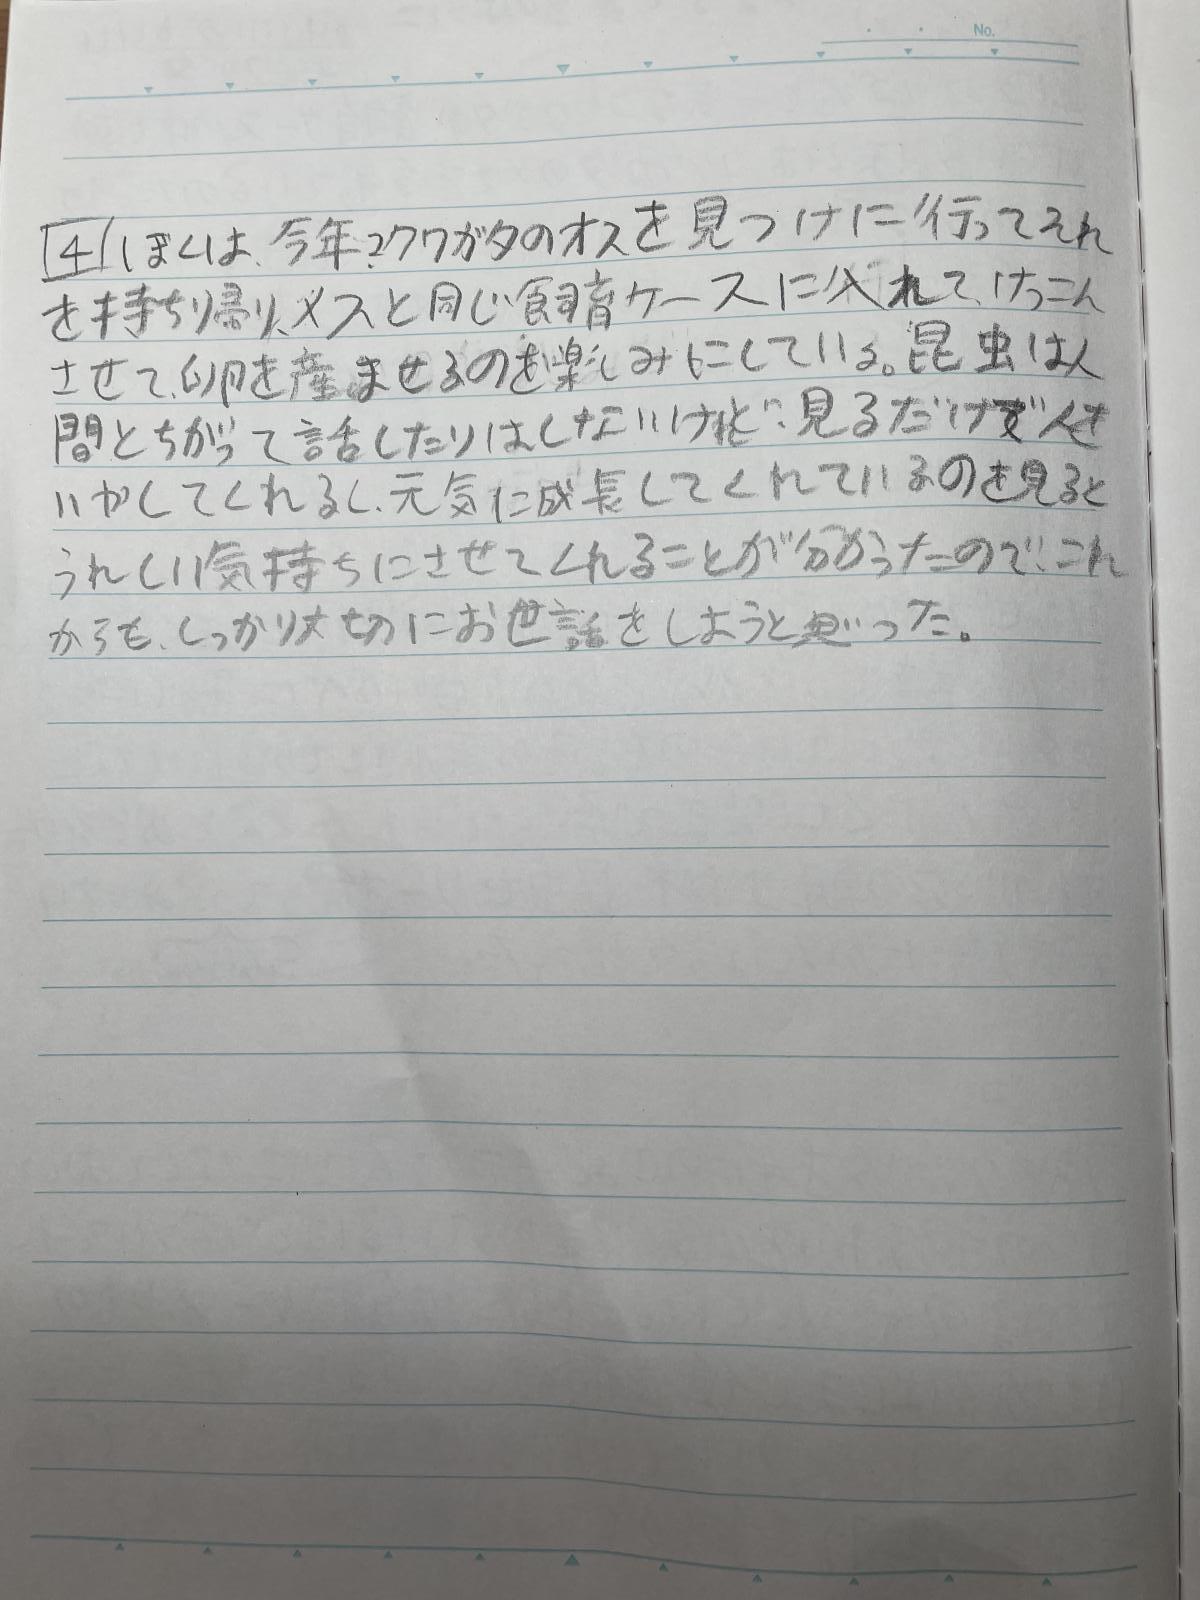 No.
4 ぼくは、今年、クワガタのオスを見つけに行ってそれ
を持ち帰り、メスと同じ飼育ケースに入れて、けっこん
させて、卵を産ませるのを楽しみにしている。昆虫は人
間とちがって話したりはしないけれど、見るだけで人を
いかしてくれるし、元気に成長してくれているのを見ると
うれしい気持ちにさせてくれることが分かったので、これ
からも、しっかり大切にお世話をしようと思った。